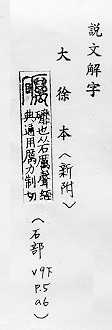 說文解字
大徐本〈新附〉
䃺也从石厲聲經
典通用厲力制切
〈石部
v9下
p.5
a6〉